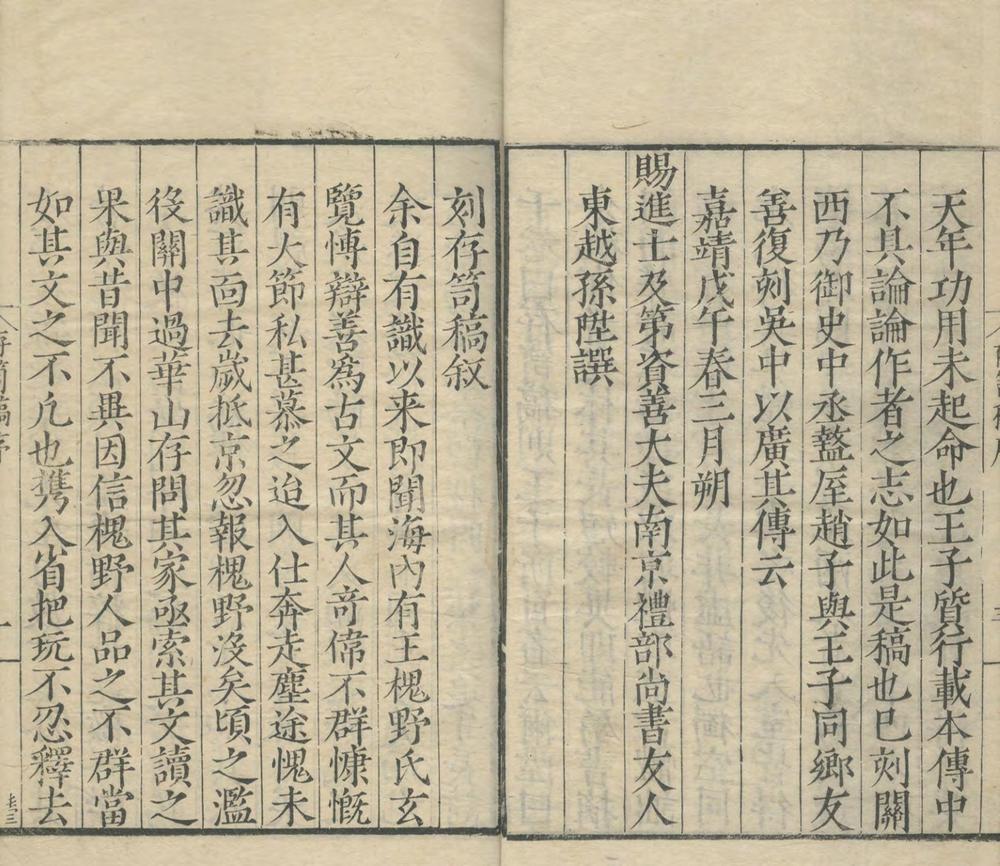 天年功用未起命也王子質行載本傳中
不具論論作者之志如此是稿也已刻關
西乃御史中丞盩厔趙子與王子同鄉友
善復刻吳中以廣其傳云
嘉靖戊午春三月朔
賜進士及第資善大夫南京禮部尚書友人
東越孫陞譔
刻存笥稿叙
余自有識以来即聞海內有王槐野氏玄
覽愽辯善爲古文而其人竒偉不群慷慨
有大節私甚慕之迨入仕奔走塵途愧未
識其面去歲抵京忽報槐野沒矣頃之濫
役關中過華山存問其家亟索其文讀之
果與昔聞不異因信槐野人品之不群當
如其文之不凢也携入省把玩不忍釋去
存笥稿序
一